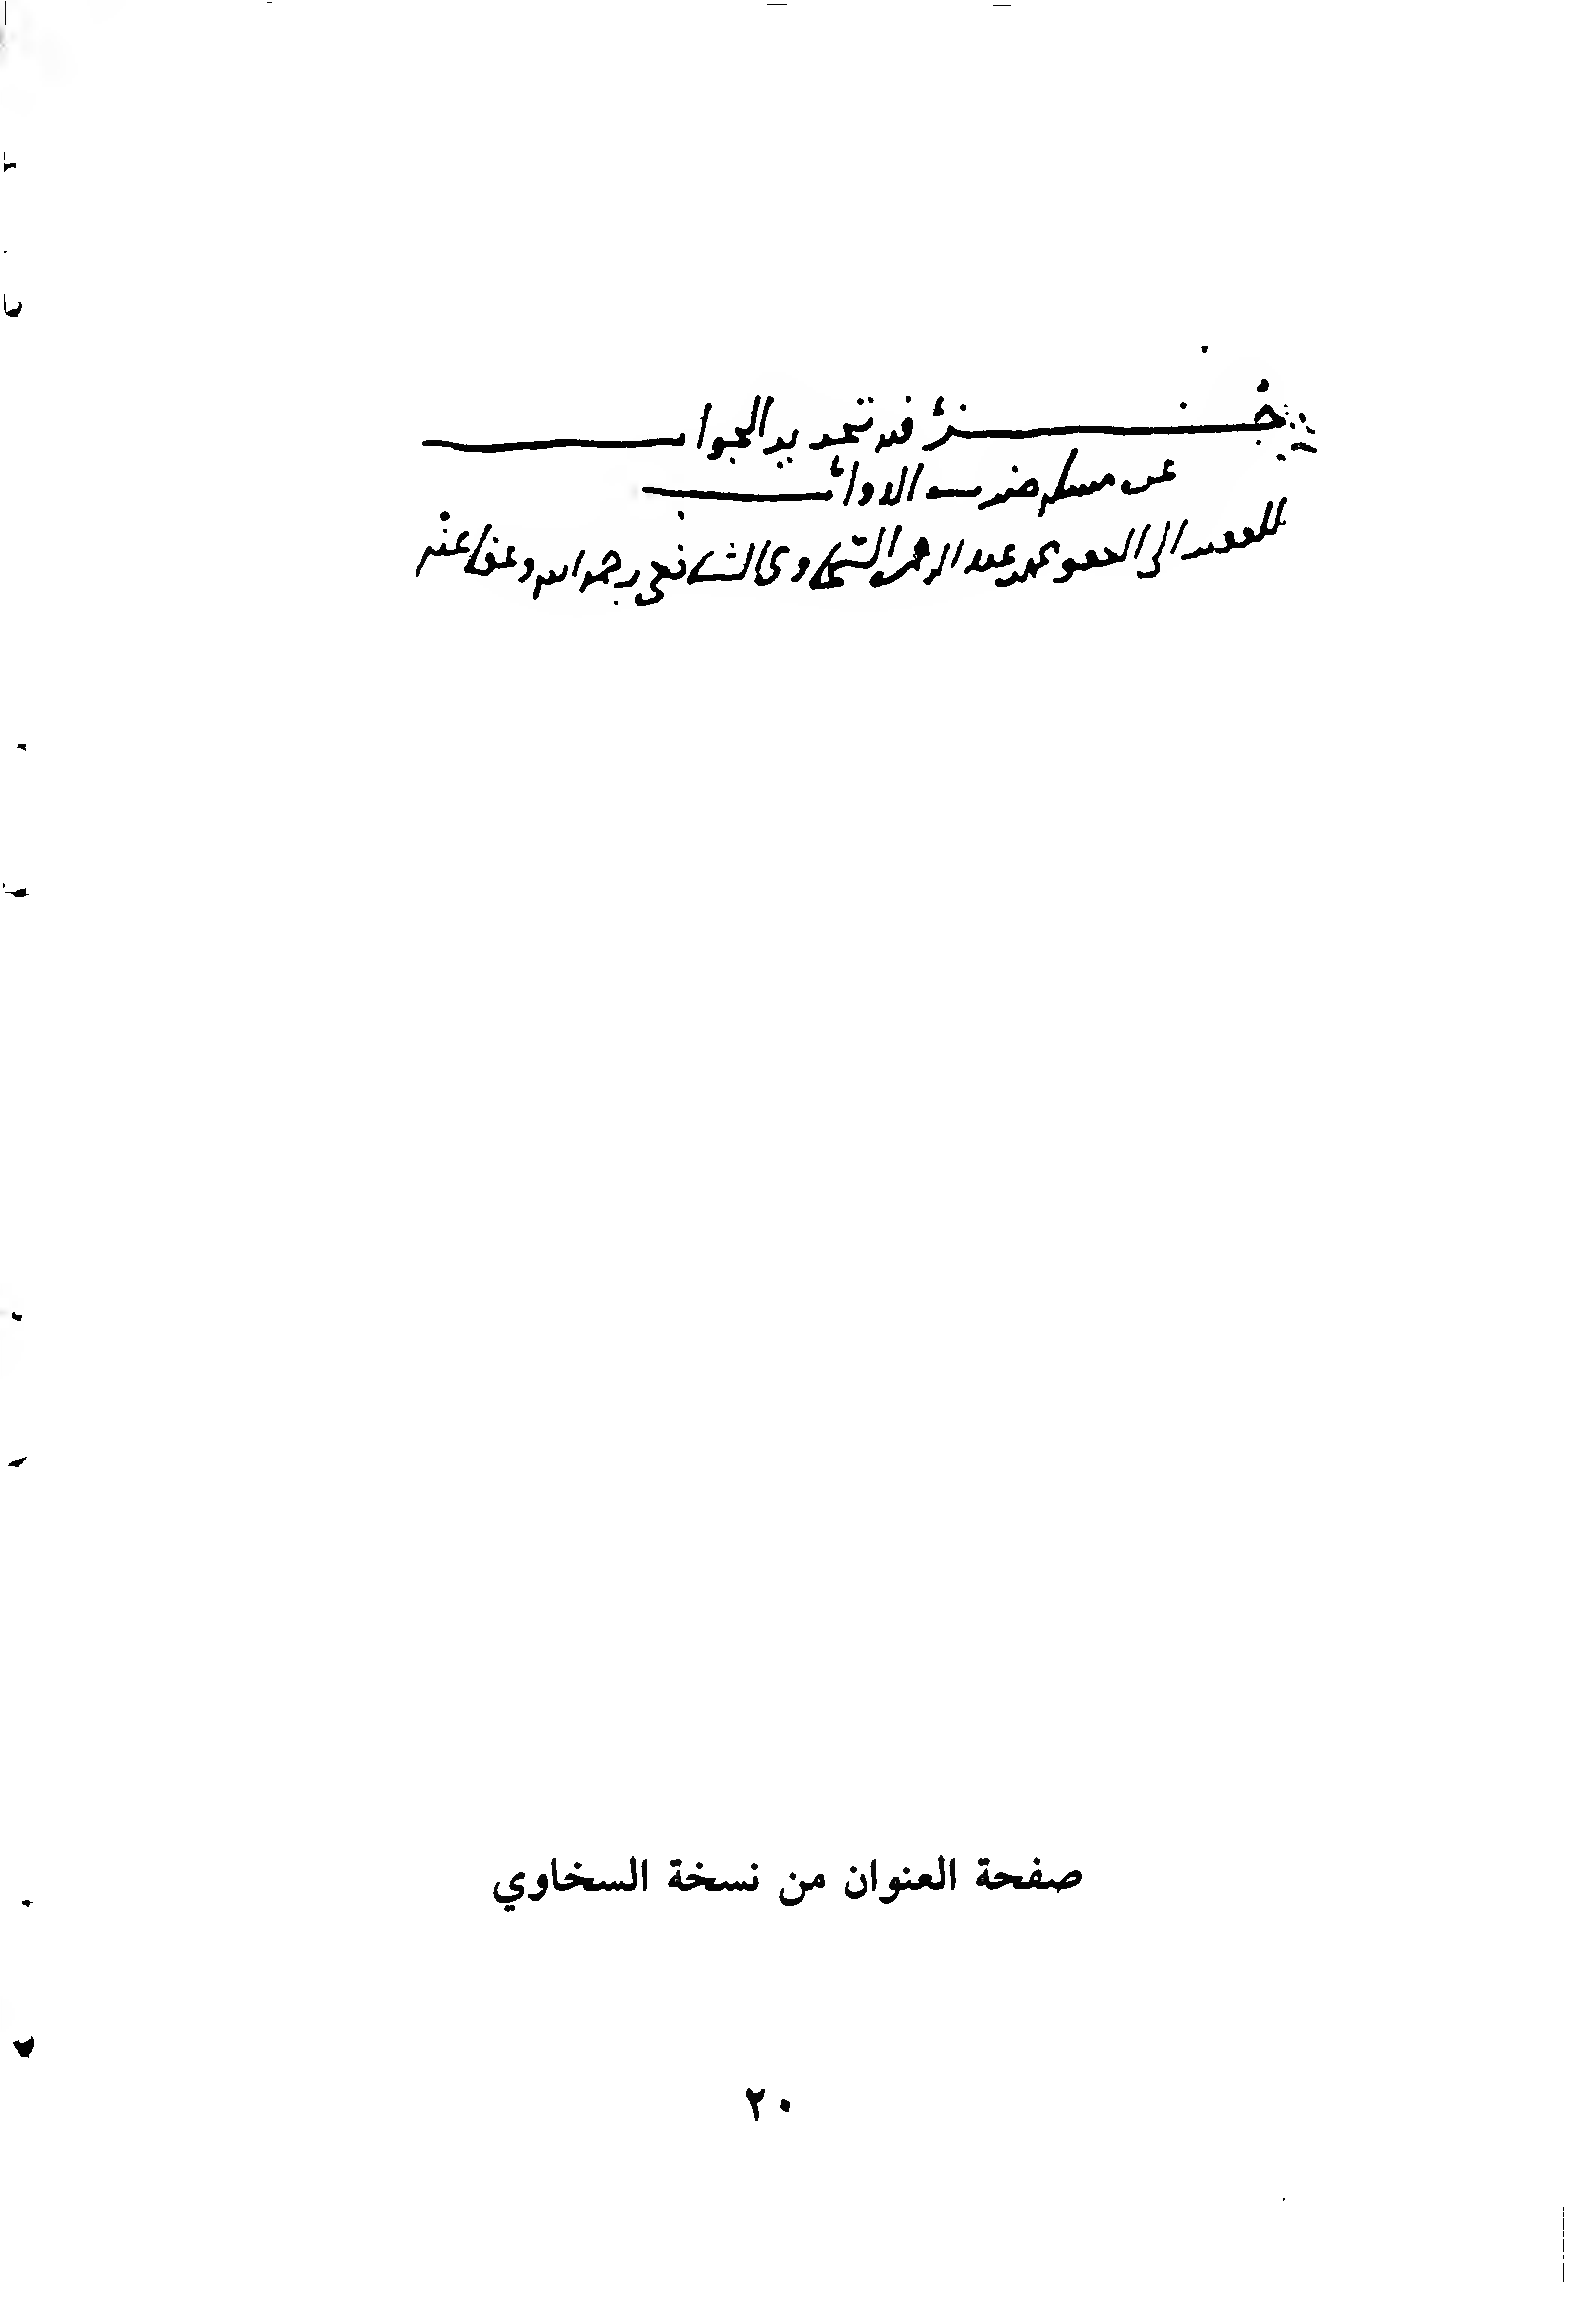 جزء فيه تحديد الجواب
عن مسئلة ضرب الدوائب
للفقير الى العفو محمد عبد الرحمن السخاوي الشافعي رحمه الله وعفا عنه
صفحة العنوان من نسخة السخاوي
٢٠